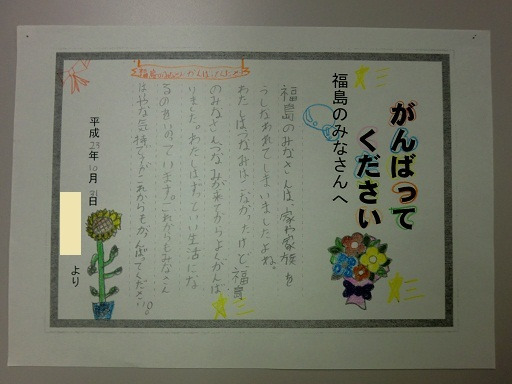 がんばって
ください
福島のみなさんへ
福島のみなさんは、家や家族を
うしなわれてしまいましたよね。
わたしは、つなみはこなかったけど福島
のみなさんつなみが来てからよくがんば
りました。わたしはずっといい生活にな
るのをいのっています。これからもみなさん
気持ちで、これからもがんばってください。
平成23年10月31日
より